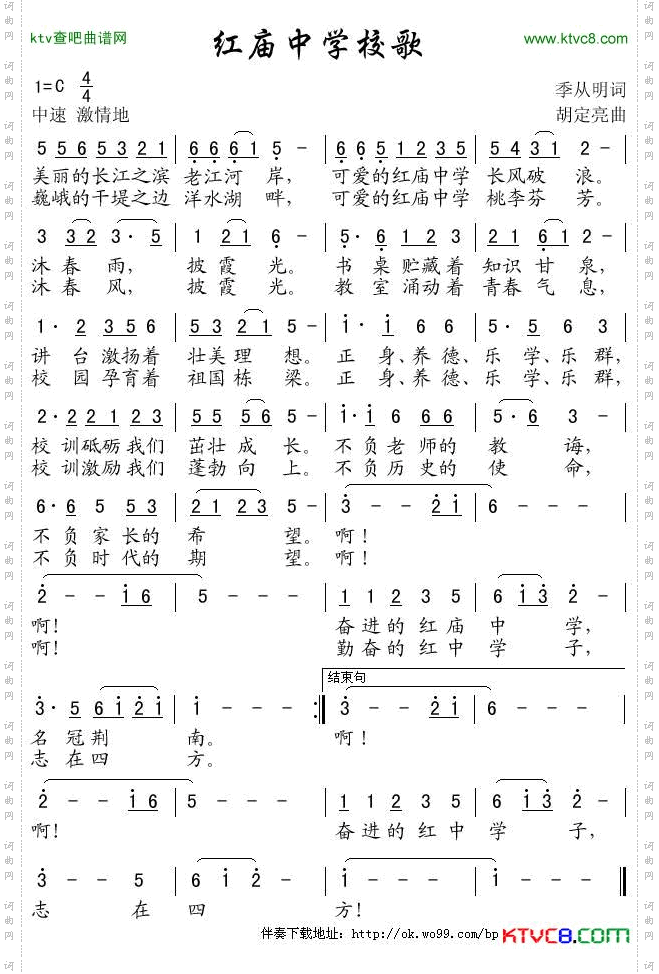 ktv查吧曲谱网
红庙中学校歌
www.ktvc8.com
1=C 4/4
季从明词
中速 激情地
胡定亮曲
5 5 6 5 3 2 1 | 6 6 6 1 5 - | 6 6 5 1 2 3 5 | 5 4 3 1 2 - |
美丽的长江之滨 老江河 岸, 可爱的红庙中学 长风破 浪。
巍峨的干堤之边 洋水湖 畔, 可爱的红庙中学 桃李芬 芳。
3 3 2 3· 5 | 1 2 1 6 - | 5· 6 1 2 3 | 2 1 6 1 2 - |
沐春 雨, 披霞 光。 书 桌 贮藏着 知识 甘 泉,
沐春 风, 披霞 光。 教 室 涌动着 青春 气 息,
1· 2 3 5 6 | 5 3 2 1 5 - | i· i 6 6 | 5· 5 6 3 |
讲 台 激扬着 壮美理 想。 正 身、养 德、乐 学、乐 群,
校 园 孕育着 祖国栋 梁。 正 身、养 德、乐 学、乐 群,
2· 2 2 1 2 3 | 5 5 5 6 5 - | i· i 6 6 6 | 5· 6 3 - |
校 训砥砺我们 茁壮 成 长。 不 负老师的 教 诲,
校 训激励我们 蓬勃 向 上。 不 负历史的 使 命,
6· 6 5 5 3 | 2 1 2 3 5 - | 3 - - 2 i | 6 - - - |
不 负 家 长的 希 望。 啊!
不 负 时 代的 期 望。 啊!
2 - - i 6 | 5 - - - | 1 1 2 3 5 | 6 i 3 2 - |
啊! 奋进的 红 庙 中 学,
啊! 勤奋的 红 中 学 子,
结束句
3· 5 6 i 2 i | i - - - :| 3 - - 2 i | 6 - - - |
名 冠荆 南。 啊!
志 在四 方。
2 - - i 6 | 5 - - - | 1 1 2 3 5 | 6 i 3 2 - |
啊! 奋进的 红 中 学 子,
3 - - 5 | 6 i 2 - | i - - - | i - - - ‖
志 在 四 方!
伴奏下载地址: http://ok.wo99.com/bp
KTVC8.COM